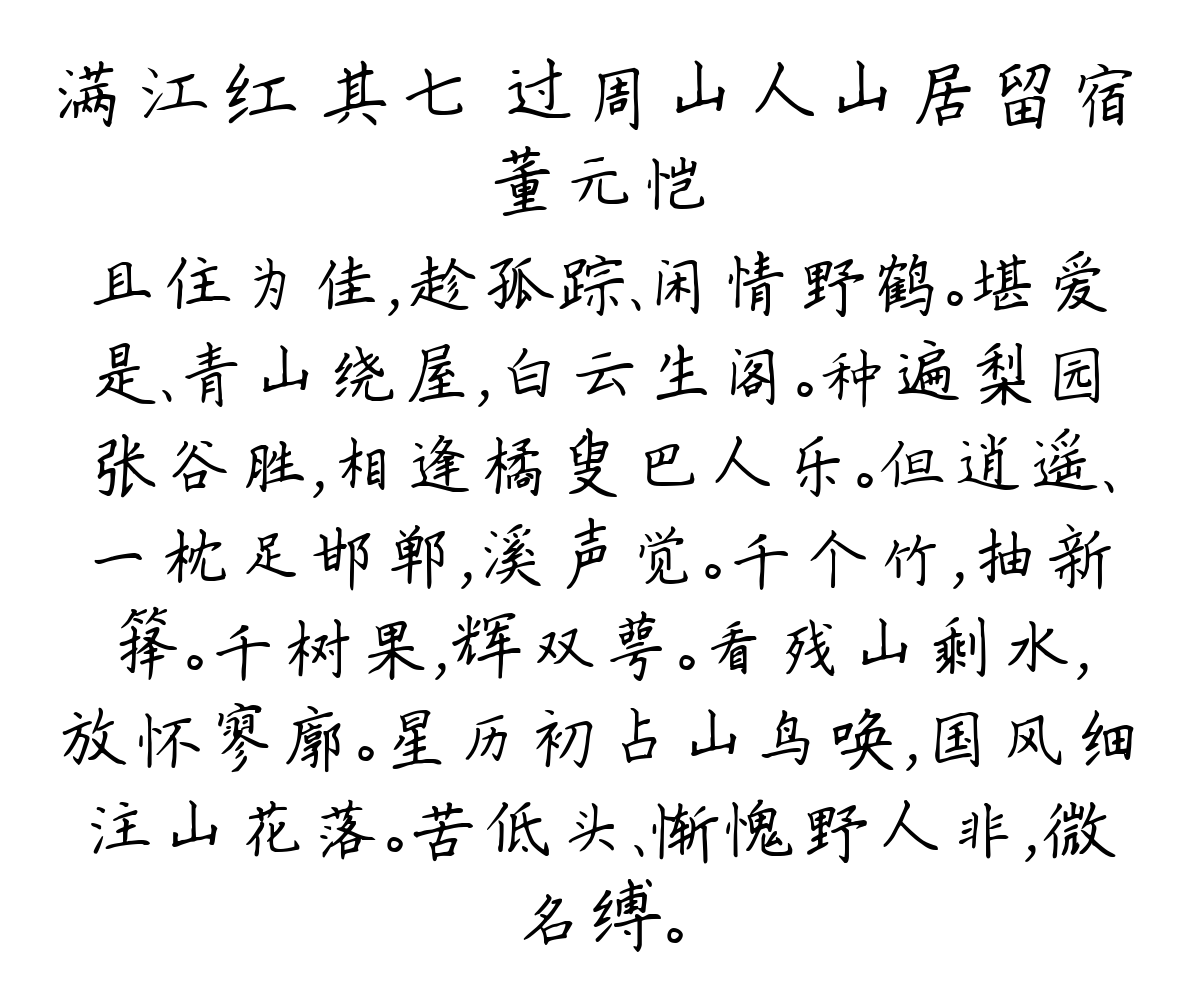 满江红 其七 过周山人山居留宿
董元恺
且住为佳,趁孤踪、闲情野鹤。堪爱
是、青山绕屋,白云生阁。种遍梨园
张谷胜,相逢橘叟巴人乐。但逍遥、
一枕足邯郸,溪声觉。千个竹,抽新
箨。千树果,辉双萼。看残山剩水,
放怀寥廓。星历初占山鸟唤,国风细
注山花落。苦低头、惭愧野人非,微
名缚。